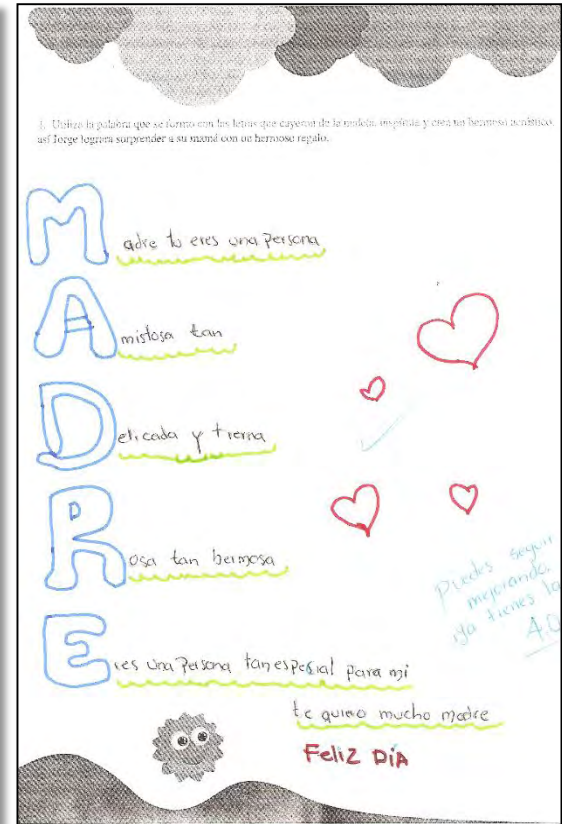 1. Utilizo la palabra que se formo con las letras que cayeron de la maleta, inspírate y crea un hermoso acróstico,
así Jorge logrará surprender a su mamá con un hermoso regalo.
Madre tu eres una Persona
Amistosa tan
Delicada y tierna
Rosa tan hermosa
Eres una Persona tan especial para mi
te quiero mucho madre
Feliz DíA
Puedes seguir
mejorando,
ya tienes la
4.0